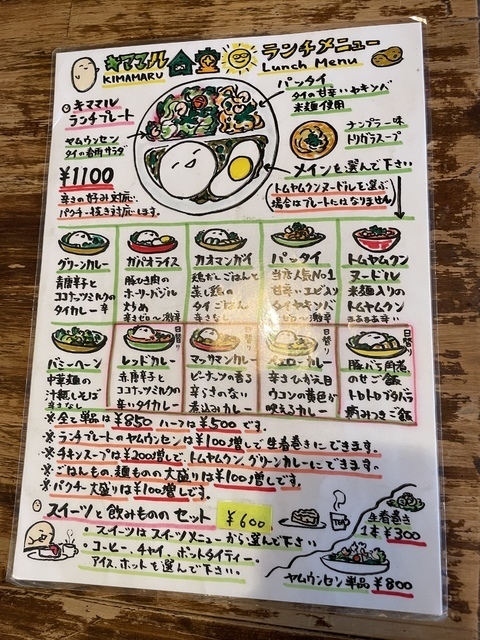 キママル食堂 ランチメニュー
KIMAMARU Lunch Menu
キママル
ランチプレート
ヤムウンセン
タイの春雨サラダ
¥1100
辛さの好み対応。
パクチー抜き対応います。
パッタイ
タイの甘辛いヤキソバ
米麺使用
ナンプラー味
トリガラスープ
メインを選んで下さい
トムヤムクンヌードルを選ぶ
場合はプレートにはなりません
グリーンカレー
青唐辛子と
ココナッツミルクの
タイカレー 辛
ガパオライス
豚ひき肉の
ホーリーバジル
炒め
辛さゼロ〜激辛
カオマンガイ
鶏だしごはんと
蒸し鶏の
タイごはん
辛さなし
パッタイ
当店人気No.1
甘辛いエビ入り
タイヤキソバ
ゼロ〜激辛
トムヤムクン
ヌードル
米麺入りの
トムヤムクン
まぁまぁ辛い
バミーヘーン
中華麺の
汁無しそば
辛さなし
日替り
レッドカレー
赤唐辛子と
ココナッツミルクの
辛いタイカレー
日替り
マッサマンカレー
ピーナッツの香る
辛さのない
煮込みカレー
日替り
イエローカレー
辛さひかえ目
ウコンの黄色が
映えるカレー
日替り
豚バラ角煮
のせご飯
トロトロブタバラ
病みつきご飯
※全て単品は¥850 ハーフは¥500です。
※ランチプレートのヤムウンセンは¥100増しで生春巻きにできます。
※チキンスープは¥200増しで、トムヤムクン、グリーンカレーにできます。
※ごはんもの、麺ものの大盛りは¥100増しです。
※パクチー大盛りは¥100増しです。
スイーツと飲みもののセット ¥600
・スイーツはスイーツメニューから選んで下さい
・コーヒー、チャイ、ホットタイティー、
アイス、ホットを選んで下さい。
生春巻き
1本¥300
ヤムウンセン単品¥800